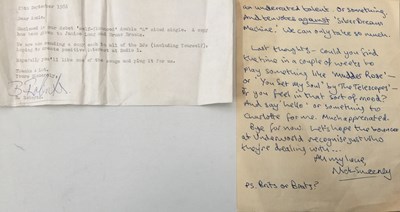 December 19
Dear
Enclosed is our latest "self-produced" double "A" sided single. A copy
has been given to
We are sending a copy each to all of the DJs (including yourself),
hoping to receive positive
Hopefully you'll like one of the songs and play it for us.
Thanks a lot.
Yours sincerely,
an underrated talent. Or something.
And besides against 'Silver Dream
Machine'. We can only take so much.
Last thought - Could you find
the time in a couple of weeks to
play something like 'Mudder Rose' -
or 'You Set My Soul' by The Telescopes -
if you feel in that sort of mood?
And say 'hello' or something to
Charlotte for me. Much appreciated.
Bye for now. Let's hope the bouncers
at Underworld recognise just who
they're dealing with...
All my love,
Nick Sweeney
PS. Brits or Brats?